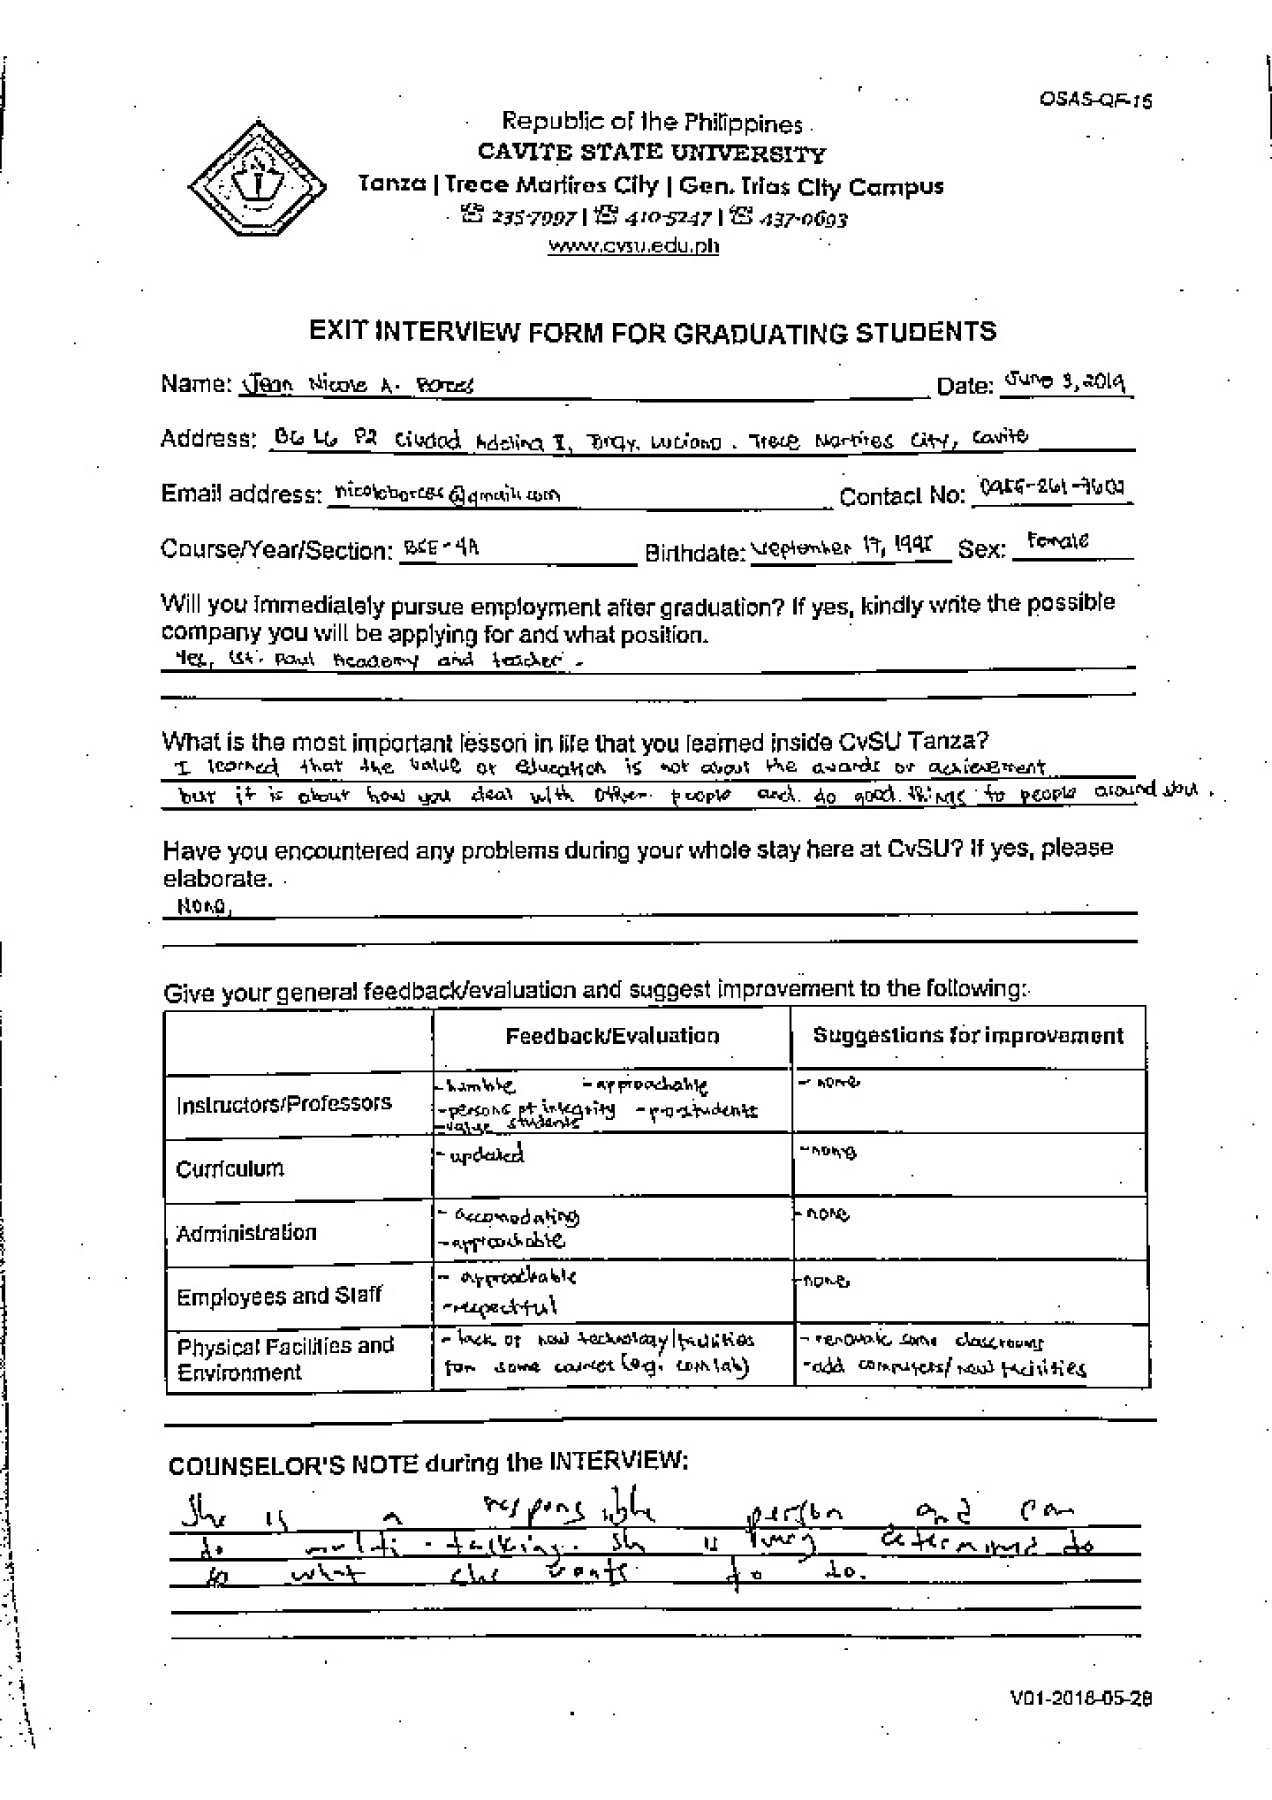 OSAS-QF-15
Republic of the Philippines
CAVITE STATE UNIVERSITY
Tanza | Trece Martires City | Gen. Trias City Campus
☎ 235-7997 | ☎ 410-5247 | ☎ 437-0693
www.cvsu.edu.ph
EXIT INTERVIEW FORM FOR GRADUATING STUDENTS
Name: Jean Nicole A. Borces Date: June 3, 2019
Address: B6 L6 P2 Ciudad Adelina I, Brgy. Luciano. Trece Martires City, Cavite
Email address: nicoleborces@gmail.com Contact No:
Course/Year/Section: BSE-4A Birthdate: September 17, Sex: Female
Will you immediately pursue employment after graduation? If yes, kindly write the possible
company you will be applying for and what position.
Yes, St. Paul Academy and teacher.
What is the most important lesson in life that you learned inside CvSU Tanza?
I learned that the value of education is not about the awards or achievement
but it is about how you deal with other people and do good things to people around you.
Have you encountered any problems during your whole stay here at CvSU? If yes, please
elaborate.
None,
Give your general feedback/evaluation and suggest improvement to the following:
Feedback/Evaluation Suggestions for improvement
Instructors/Professors
- humble - approachable - none
- persons of integrity - pro-students
- value students
Curriculum - updated - none
Administration - accomodating - none
- approachable
Employees and Staff - approachable - none
- respectful
Physical Facilities and - lack of new technology/facilities - renovate some classrooms
Environment for some courses (eg. comlab) - add computers/new facilities
COUNSELOR'S NOTE during the INTERVIEW:
She is a responsible person and can
do multi-tasking. She is very determined to
do what she wants to do.
V01-2018-05-28